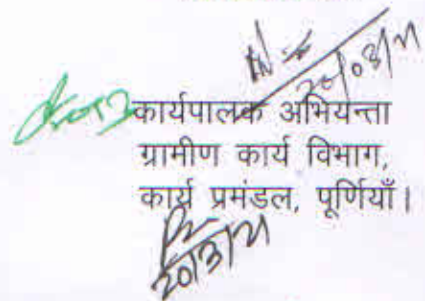 20/03/21
कार्यपालक अभियन्ता
ग्रामीण कार्य विभाग,
कार्य प्रमंडल, पूर्णियाँ।
20/3/21